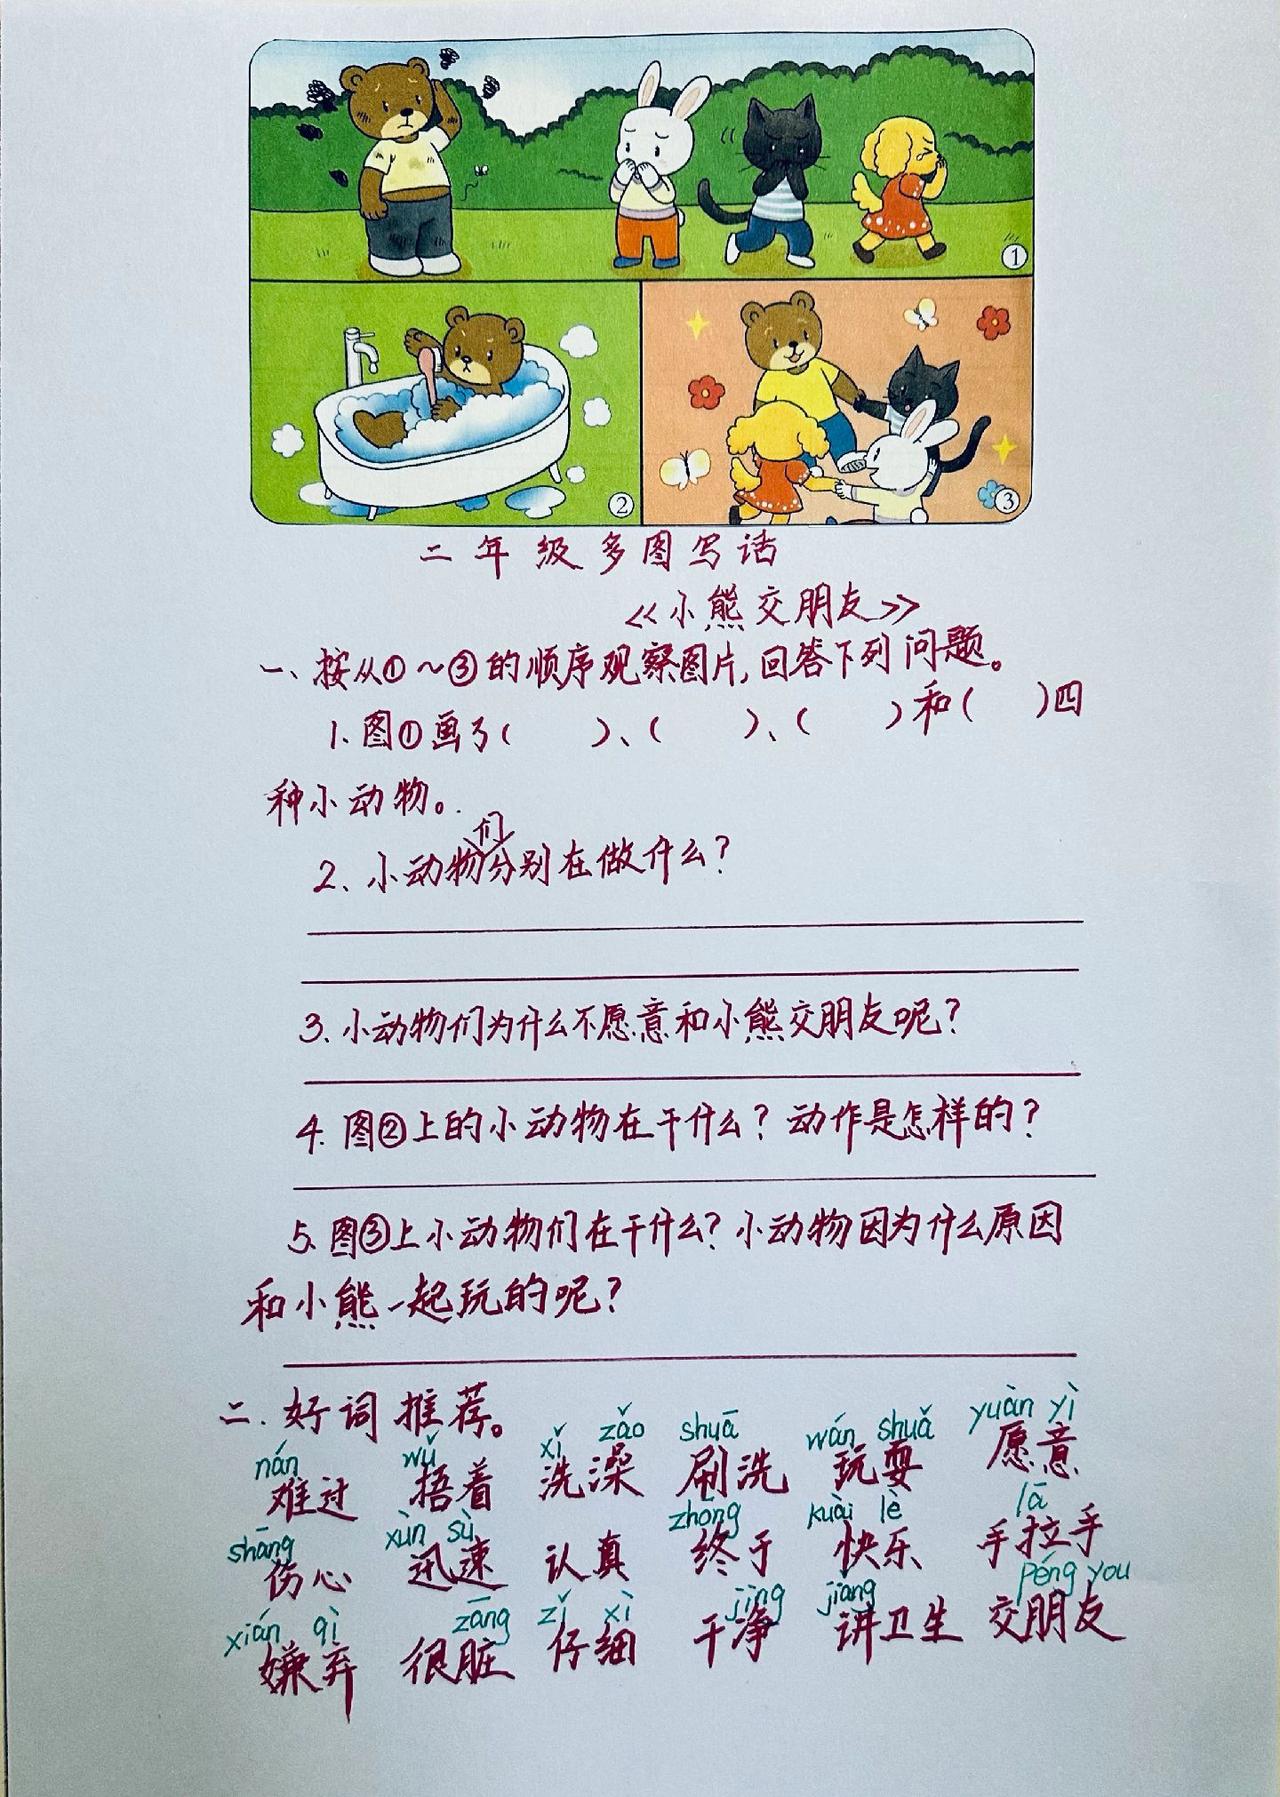 ①
②
③
二年级多图写话
《小熊交朋友》
一、按从①～③的顺序观察图片,回答下列问题。
1.图①画了(  )、(  )、(  )和(  )四
种小动物。
2、小动物们分别在做什么?
3.小动物们为什么不愿意和小熊交朋友呢?
4.图②上的小动物在干什么?动作是怎样的?
5.图③上小动物们在干什么?小动物因为什么原因
和小熊一起玩的呢?
二.好词推荐。
nán wǔ xǐ zǎo shuā wán shuǎ yuàn yì
难过 捂着 洗澡 刷洗 玩耍 愿意
shāng xùn sù zhōng kuài lè lā
伤心 迅速 认真 终于 快乐 手拉手
xián qì zāng zǐ xì jìng jiǎng péng you
嫌弃 很脏 仔细 干净 讲卫生 交朋友